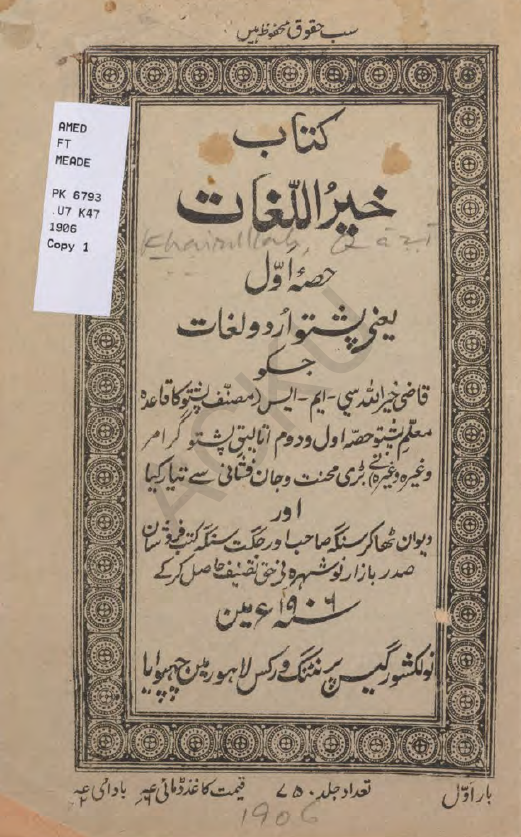 سب حقوق محفوظ ہیں
AMED
FT
MEADE
PK 6793
.U7 K47
1906
Copy 1
کتاب
خیرُ اللّغات
Khairullah, Qazi
حصۂ اوّل
یعنی پشتو اُردو لغات
جسکو
قاضی خیر اللہ سی-ایم-ایس (مصنّف پشتو کا قاعدہ
معلّم پشتو حصہ اول و دوم اتالیق پشتو گرامر
وغیرہ وغیرہ) نے بڑی محنت و جان فشانی سے تیار کیا
اور
دیوان ٹھاکر سنگہ صاحب اور جگت سنگہ کتب فروشان
صدر بازار نوشہرہ نے حق تصنیف حاصل کر کے
سنہ ۱۹۰۶ء مین
نولکشور گیس پرنٹنگ ورکس لاہور مین چھپوایا
بار اوّل
تعداد جلد ۷۵۰
قیمت کاغذ ڈمائی
بادامی
1906
ACKU